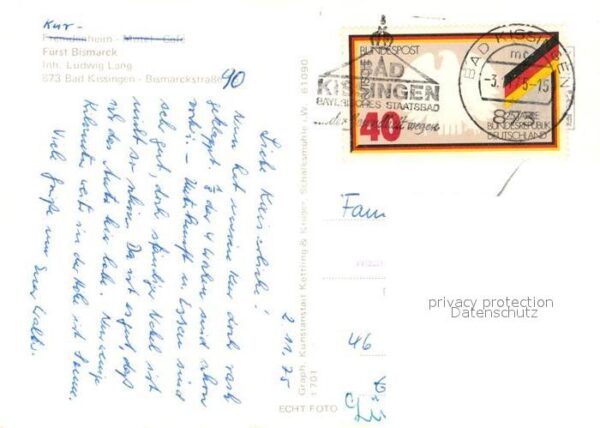 Kur-
Fremdenheim - Mittel - Café
Fürst Bismarck
Inh. Ludwig Lang
873 Bad Kissingen - Bismarckstraße 90
2.11.75
Liebe
Nun hat unsere Kur doch noch
geklappt. 3 der 4 Wochen sind schon
vorbei. Unterkunft u. Essen sind
sehr gut, doch ständiger Nebel ist
nicht so schön. Da ist es gut, daß
ich das Auto hier habe. Nur wenige
Kilometer weiter in der Höhe ist Sonne.
Viele Grüße von Eurer
Graph. Kunstanstalt Kettling & Krüger, Schalksmühle i.W. 61090
1701
ECHT FOTO
DEUTSCHE BUNDESPOST
BAD
KISSINGEN
BAYERISCHES STAATSBAD
40
25 JAHRE
BUNDESREPUBLIK
DEUTSCHLAND
BAD KISSINGEN
-3.11.75-15
873
Fam
46
privacy protection
Datenschutz